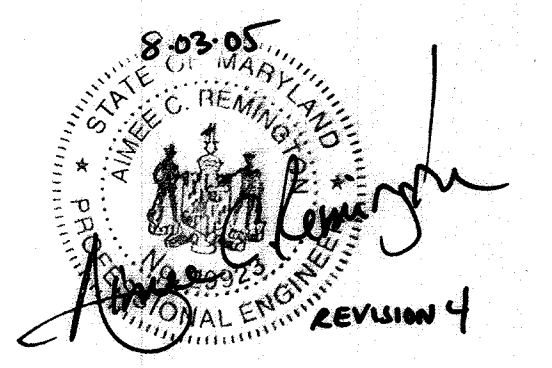 8·03·05
STATE OF MARYLAND
AIMEE C. REMINGTON
PROFESSIONAL ENGINEER
Aimee C. Remington
REVISION 4